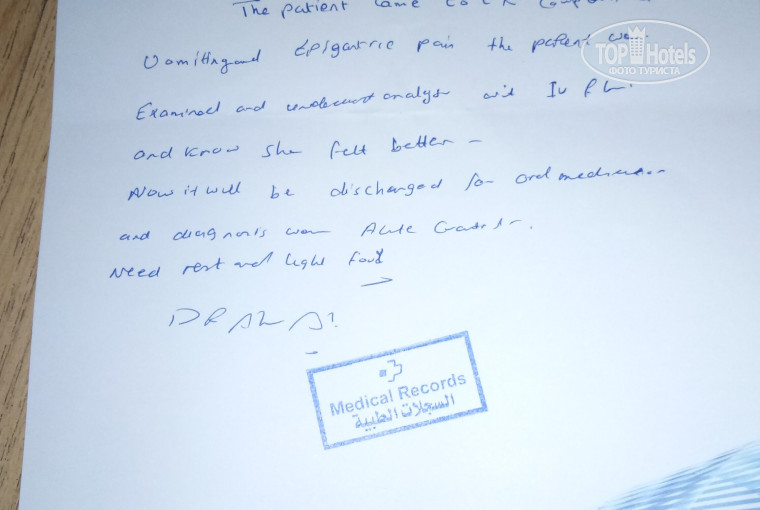 The patient came to ER
Vomiting and Epigastric pain the patient was
Examined and underwent analysis and IV
and know she felt better -
Now it will be discharged for oral medication
and diagnosis was Acute Gastritis.
Need rest and light food
DR
Medical Records
السجلات الطبية
TOP Hotels
ФОТО ТУРИСТА